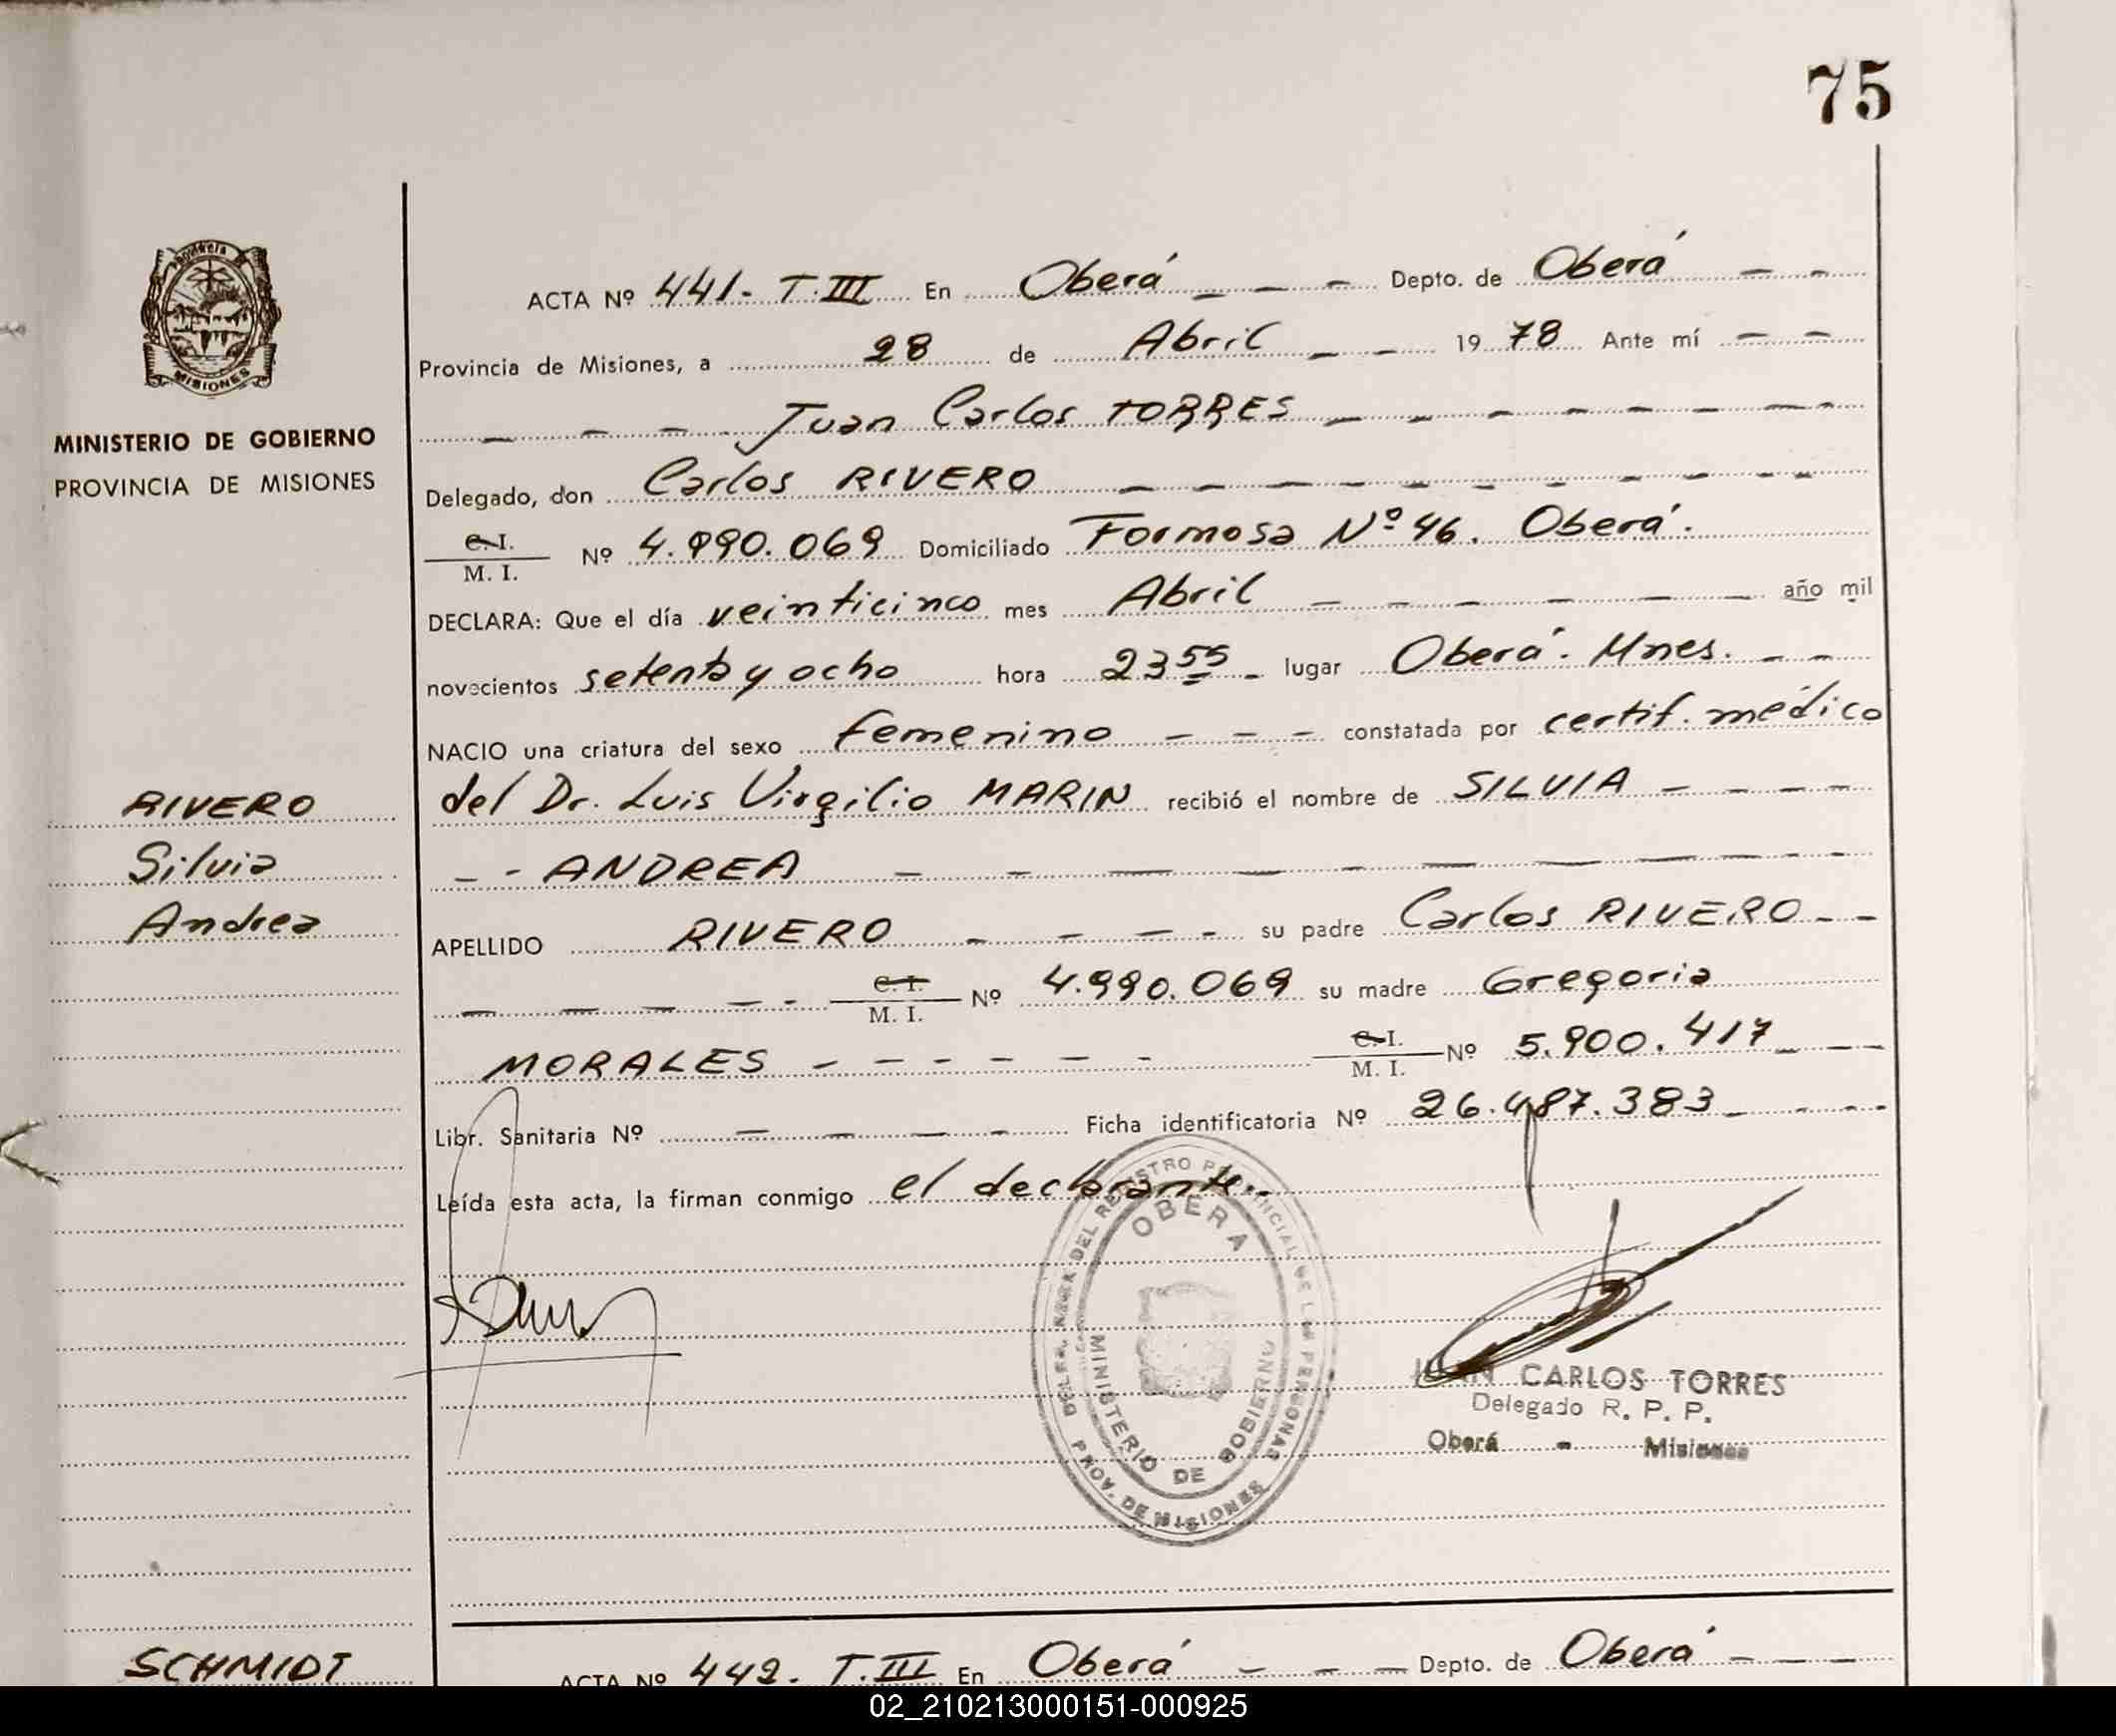 75
Provincia de
MISIONES
MINISTERIO DE GOBIERNO
PROVINCIA DE MISIONES
RIVERO
Silvia
Andrea
SCHMIDT
ACTA Nº 441- T.III En Oberá Depto. de Oberá
Provincia de Misiones, a 28 de Abril 1978 Ante mí
Juan Carlos TORRES
Delegado, don Carlos RIVERO
C.I.
M. I. Nº 4.990.069 Domiciliado Formosa Nº 46. Oberá.
DECLARA: Que el día veinticinco mes Abril año mil
novecientos setenta y ocho hora 23 55 lugar Oberá. Mnes.
NACIO una criatura del sexo femenino constatada por certif. médico
del Dr. Luis Virgilio MARIN recibió el nombre de SILVIA
ANDREA
APELLIDO RIVERO su padre Carlos RIVERO
C.I.
M. I. Nº 4.990.069 su madre Gregoria
MORALES C.I.
M. I. Nº 5.900.417
Libr. Sanitaria Nº Ficha identificatoria Nº 26.487.383
Leída esta acta, la firman conmigo el declarante.
REGISTRO PROVINCIAL DE LAS PERSONAS
OBERA
MINISTERIO DE GOBIERNO
PROV. DE MISIONES
JUAN CARLOS TORRES
Delegado R. P. P.
Oberá - Misiones
ACTA Nº 442. T.III En Oberá Depto. de Oberá
02_210213000151-000925